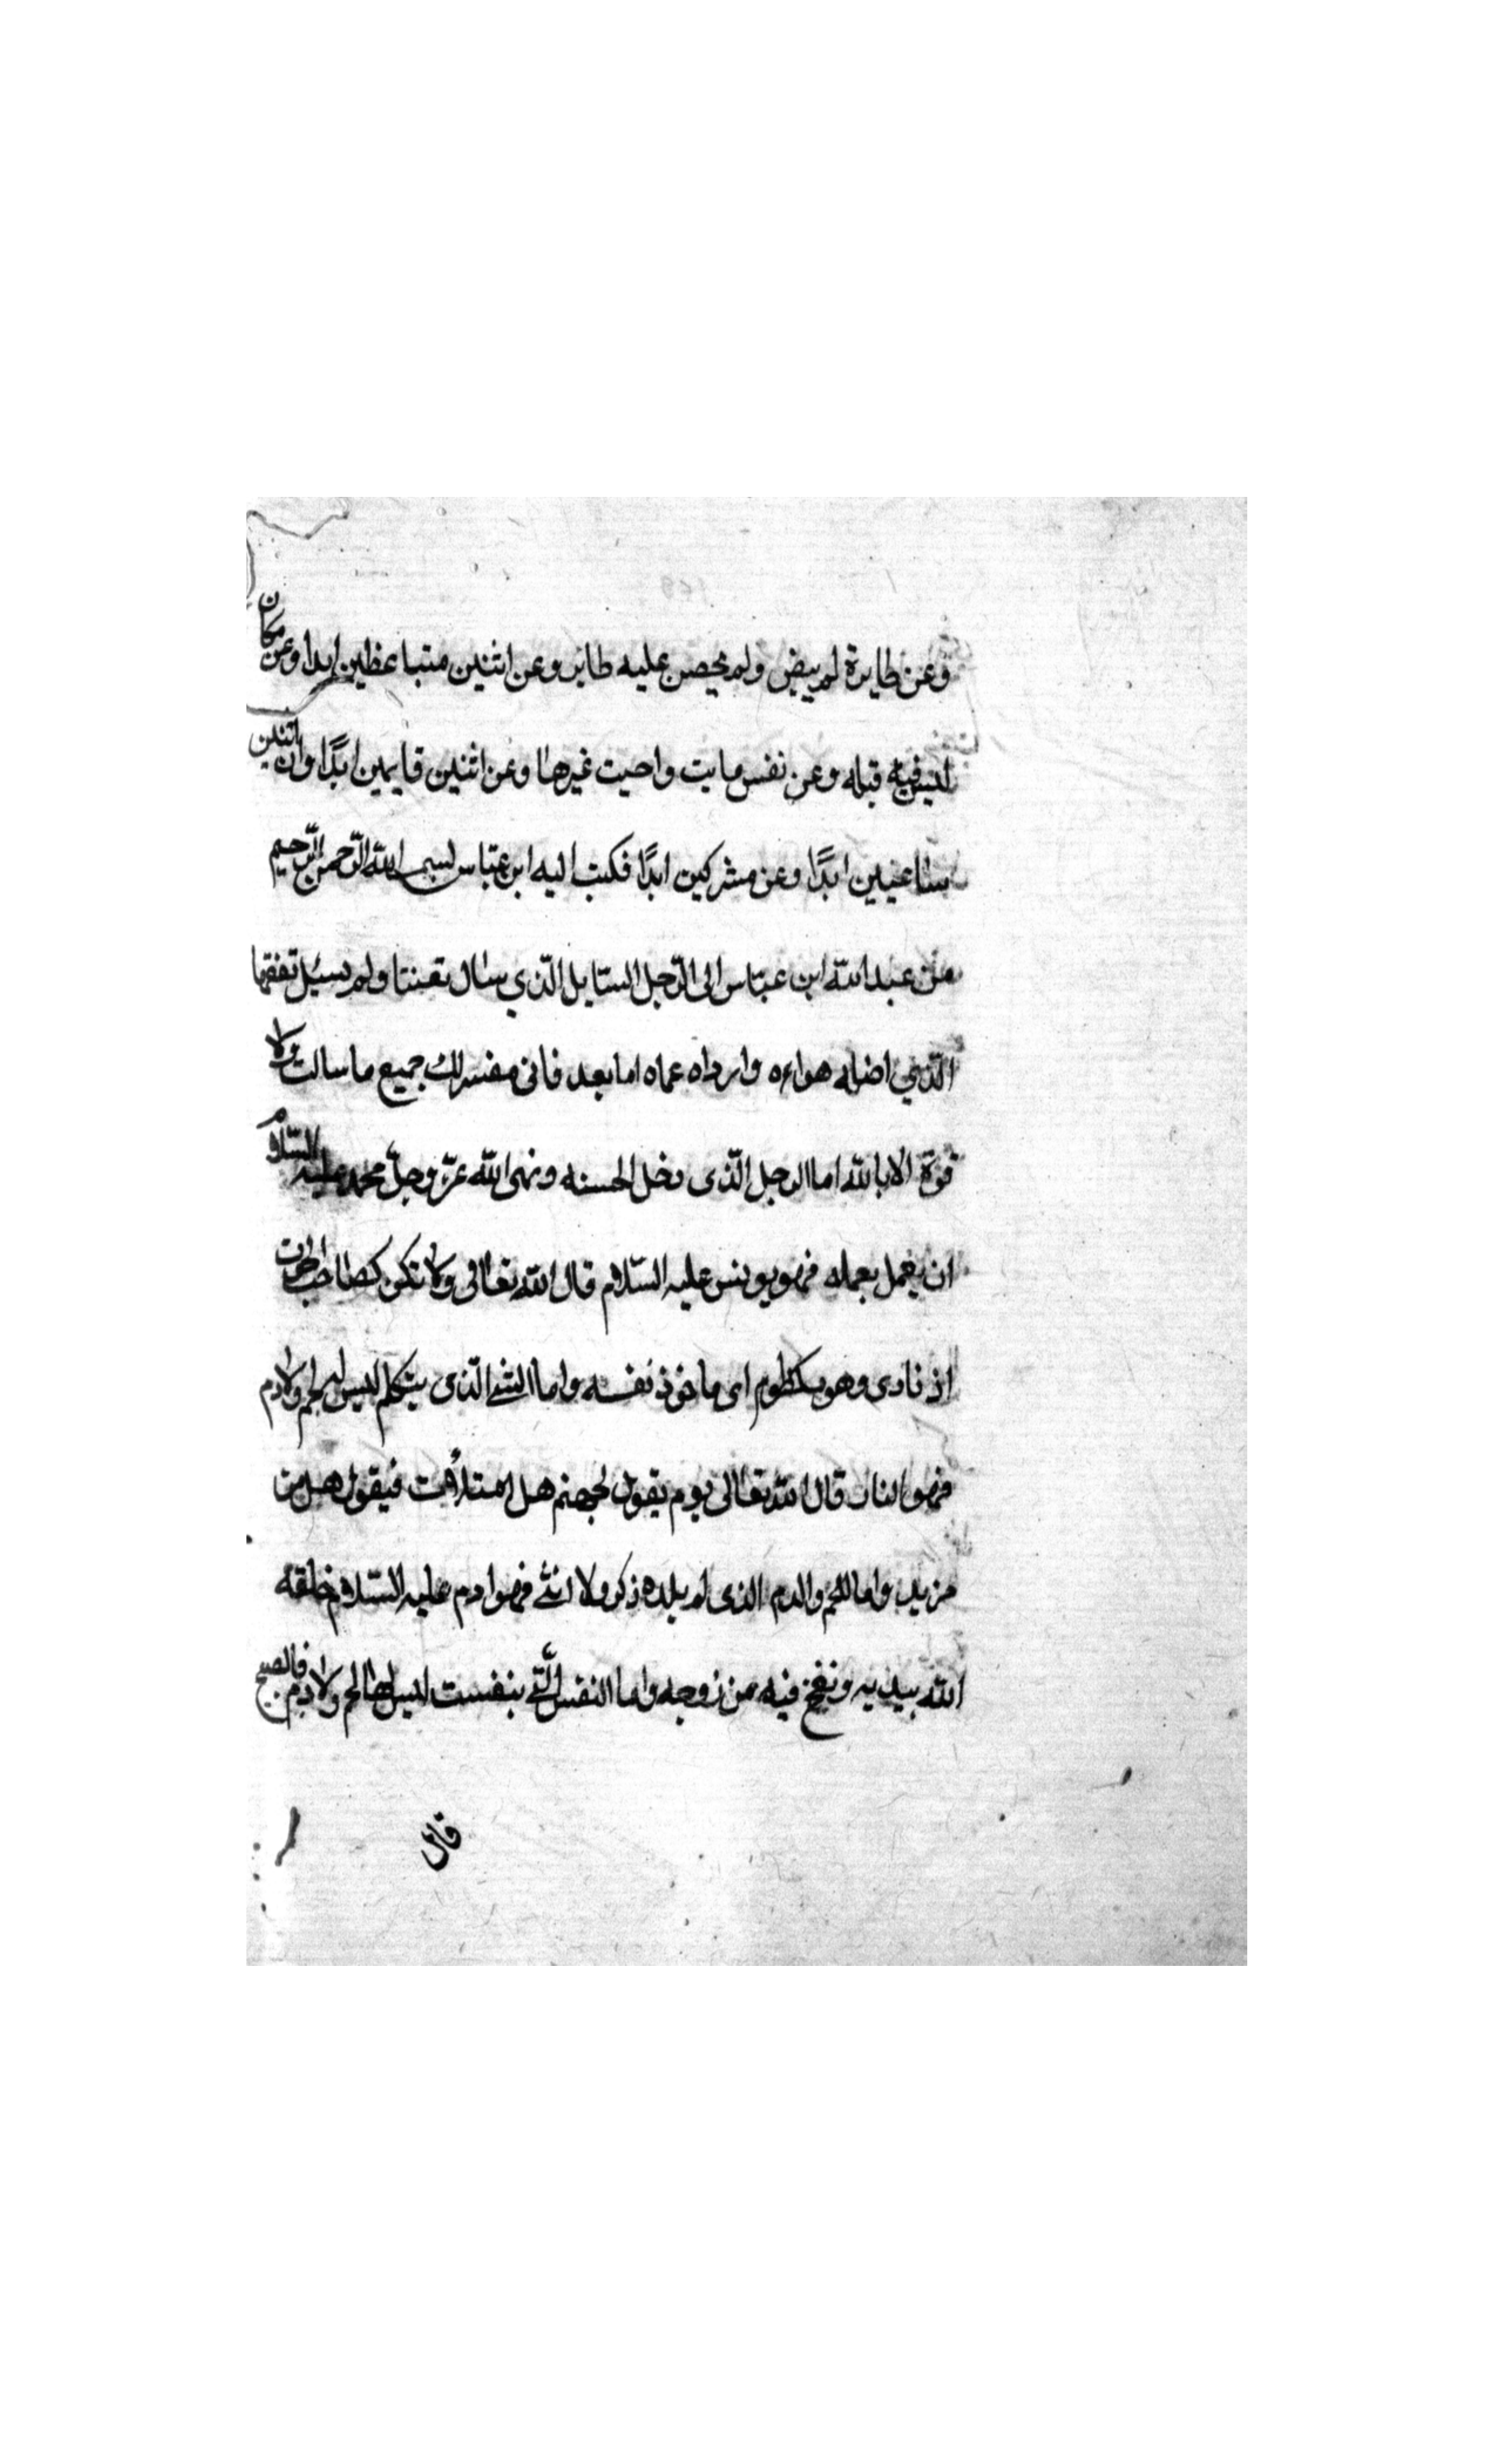 وعن طايرة لم يبيض ولم يحصن عليه طاير وعن اثنين متباغظين ابدا وعن مكان
ليس فيه قبله وعن نفس مايت واحيت غيرها وعن اثنين قايمين ابدًا واثنين
ساعيين ابدًا وعن مشركين ابدًا فكتب اليه ابن عبّاس بسم الله الرّحمن الرّحيم
من عبد الله ابن عبّاس الى الرّجل السّايل الّذي سال تعنتا ولم يسيل تفقها
الّذي اضله هواءه وارداه عماه اما بعد فانى مفسر لك جميع ما سالت ولا
قوّة الا بالله اما الرجل الّذى دخل الحسنه ونهى الله عزّ وجلّ محمد عليه السّلام
ان يعمل بعمله فهو يونس عليه السّلام قال الله تعالى ولا تكن كصاحب الحوت
اذ نادى وهو مكظوم اى ماخوذ نفسه واما الشئ الّذى يتكلم ليس له لحم ولا دم
فهو النار قال الله تعالى يوم يقول لجهنم هل امتلأت فيقول هل من
مزيد واما اللحم والدم الذى لم يلده ذكر ولا انثى فهو ادم عليه السّلام خلقه
الله بيديه ونفخ فيه من روحه واما النفس الّتى بنفست ليس لها لحم ولا دم فالصبح
قال